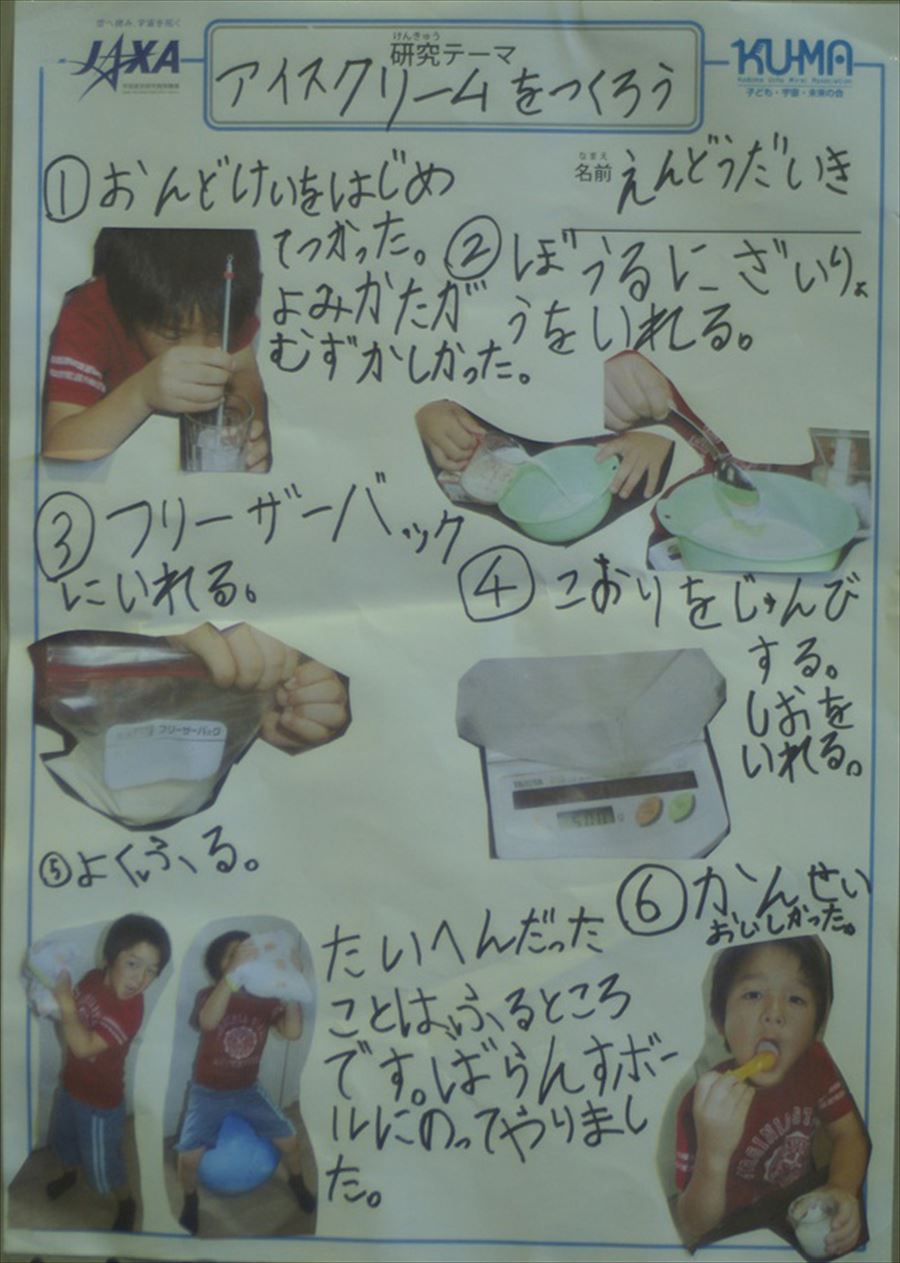 空へ挑み、宇宙を拓く
JAXA
けんきゅう
研究テーマ
アイスクリームをつくろう
KU-MA
Kodomo Uchu Mirai Association
子ども・宇宙・未来の会
なまえ
名前 えんどうだいき
① おんどけいをはじめ
てつかった。
よみかたが
むずかしかった。
② ぼうるにざいりょ
うをいれる。
③ フリーザーバック
にいれる。
フリーザーバック
④ こおりをじゅんび
する。
しおを
いれる。
TANITA
⑤ よくふる。
たいへんだった
ことは、ふるところ
です。ばらんすボー
ルにのってやりまし
た。
⑥ かんせい
おいしかった。